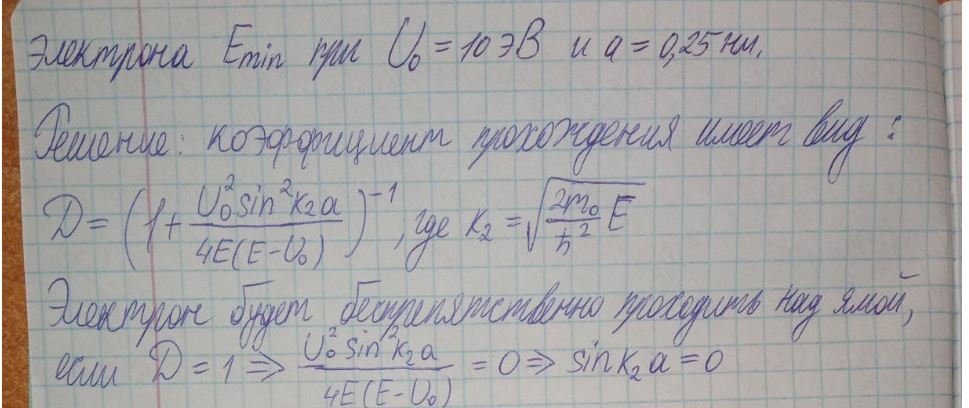 Электрона Emin при U₀ = 10 эВ и a = 0,25 нм.
Решение: коэффициент прохождения имеет вид:
D = (1 + U₀² sin² k₂a / 4E(E-U₀))⁻¹, где k₂ = √(2m₀/ħ² E)
Электрон будет беспрепятственно проходить над ямой,
если D = 1 ⇒ U₀² sin² k₂a / 4E(E-U₀) = 0 ⇒ sin k₂a = 0